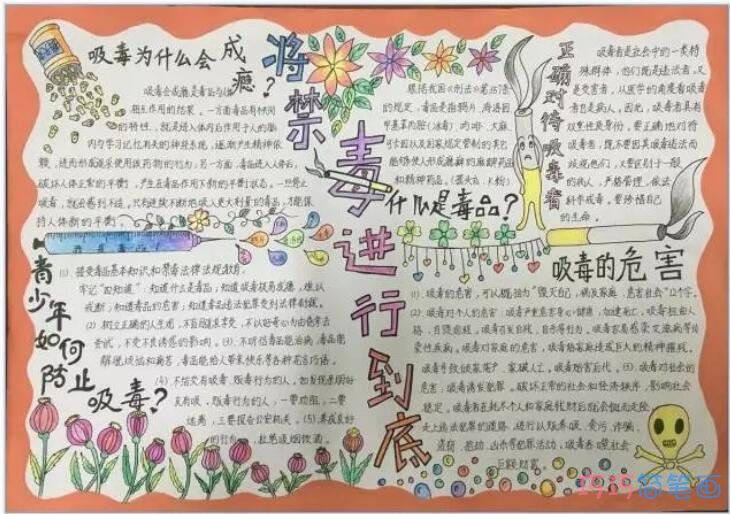 将禁毒进行到底
吸毒为什么会成瘾？
吸毒会成瘾是毒品与人体
相互作用的结果。一方面毒品有特殊
的特性，就是进入体内后作用于人的脑
内与学习记忆相关的神经系统，逐渐产生精神依
赖，进而形成渴求使用该药物的行为；另一方面，毒品进入人体后，
破坏人体正常的平衡，产生在毒品作用下新的平衡状态。一旦停止
吸毒，就会感到不适。只有连续不断地吸入更大剂量的毒品，才能保
持人体新的平衡。
什么是毒品？
根据我国《刑法》第
的规定，毒品是指鸦片、海洛因
甲基苯丙胺（冰毒）、吗啡、大麻
可卡因以及国家规定管制的其它
能够使人形成瘾癖的麻醉药品
和精神药品。（摇头丸、K粉）
正确对待吸毒者
吸毒者是社会中的一类特
殊群体，他们既是违法者，又
是受害者，从医学的角度看吸毒
者是病人。因此，吸毒者具有
双重性质身份。要正确地对待
吸毒者，既不要因其吸毒违法而
歧视他们，又要区别于一般
的病人，严格管理，依法
科学戒毒。要珍惜自己
的生命。
青少年如何防止吸毒？
(1)、接受毒品基本知识和禁毒法律法规教育，
牢记“四知道”：知道什么是毒品；知道吸毒极易成瘾，难以
戒断；知道毒品的危害；知道毒品违法犯罪要受到法律制裁。
(2)、树立正确的人生观，不盲目追求享受，
尝试，不受不良诱惑的影响。(3)、不听信毒品能治病，毒品能
解脱烦恼和痛苦，毒品能给人带来快乐等各种花言巧语。
(4)、不结交有吸毒、贩毒行为的人。如发现亲朋好
友有吸、贩毒行为的人，一要劝阻，二要
远离，三要报告公安机关。(5)、养成良好
的行为，杜绝吸烟饮酒。
吸毒的危害
(1)、吸毒的危害，可以概括为“毁灭自己，祸及家庭，危害社会”12个字。
(2)、吸毒对个人的危害：吸毒严重危害身心健康，加速死亡，吸毒扭曲人
格，自毁前程，吸毒引发自残、自杀等行为。吸毒容易感染艾滋病等传
染性疾病。吸毒对家庭的危害：吸毒给家庭造成巨大的精神摧残。
吸毒导致倾家荡产、家破人亡。吸毒贻害后代。(3)、吸毒对社会的
危害，吸毒诱发犯罪。破坏正常的社会和经济秩序，影响社会
稳定。吸毒者在耗尽个人和家庭钱财后就会铤而走险，
走上违法犯罪的道路，进行以贩养吸、贪污、诈骗、
盗窃、抢劫、凶杀等犯罪活动，吸毒吞噬社会
巨额财富。
1919简笔画